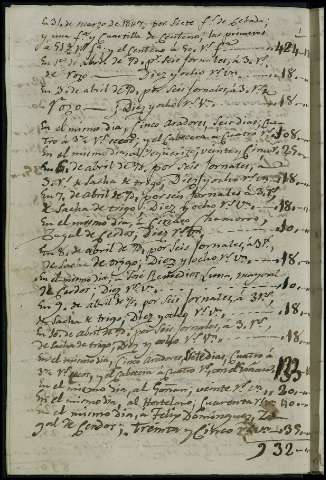 En 31, de marzo de 1847, por Siete f.s de Cebada;
y una f.a y Cuartilla de Centeno; las primeras
a 51 R.s f.a; y el Centeno à 50, r.s f.a 424
En 1.º de Abril de Yd, por seis Jornales, à 3, r.s
de Rozo Diez y ocho r.s v.n 18
En 3, de Abril de Yd, por seis Jornales, à 3, r.s
Rozo Diez y ocho r.s v.n 18
En el mismo dia, Cinco Aradores, Seis dias, Cua-
tro à 3 1/2 r.s y el Cabecera à Cuatro r.s 108
En el mismo dia, veinte y Cinco r.s 25
En 6, de abril de Yd, por seis Jornales, à
3 r.s de Sacha de trigo, Diez y ocho r.s v.n 18
En 7, de abril de Yd, por seis Jornales à 3, r.s
de Sacha de trigo; Diez y ocho r.s v.n 18
En el mismo dia, à Chamorro,
Zagal de Cerdos, Diez r.s v.n 10
En 8, de abril de Yd, por seis Jornales, à 3, r.s
de Sacha de trigo; Diez y ocho r.s v.n 18
En el mismo dia, à José Benedicto Luna, mayoral
de Cerdos, Diez r.s v.n 10
En 9, de abril de Yd, por Seis Jornales, à 3, r.s
de Sacha de trigo, Diez y ocho r.s v.n 18
En 10, de abril de Yd, por Seis Jornales, à 3, r.s,
de Sacha de trigo, Diez y ocho r.s v.n 18
En el mismo dia, Cinco Aradores, Siete dias, Cuatro à
3 1/2 r.s y el Cabecera à Cuatro r.s 133
En el mismo dia, al Gañan, veinte r.s v.n 20
En el mismo dia, al Hortelano, Cuarenta r.s 40
En el mismo dia, à Felix Dominguez, Za-
gal de Cerdos; Treinta y Cinco r.s v.n 35
932